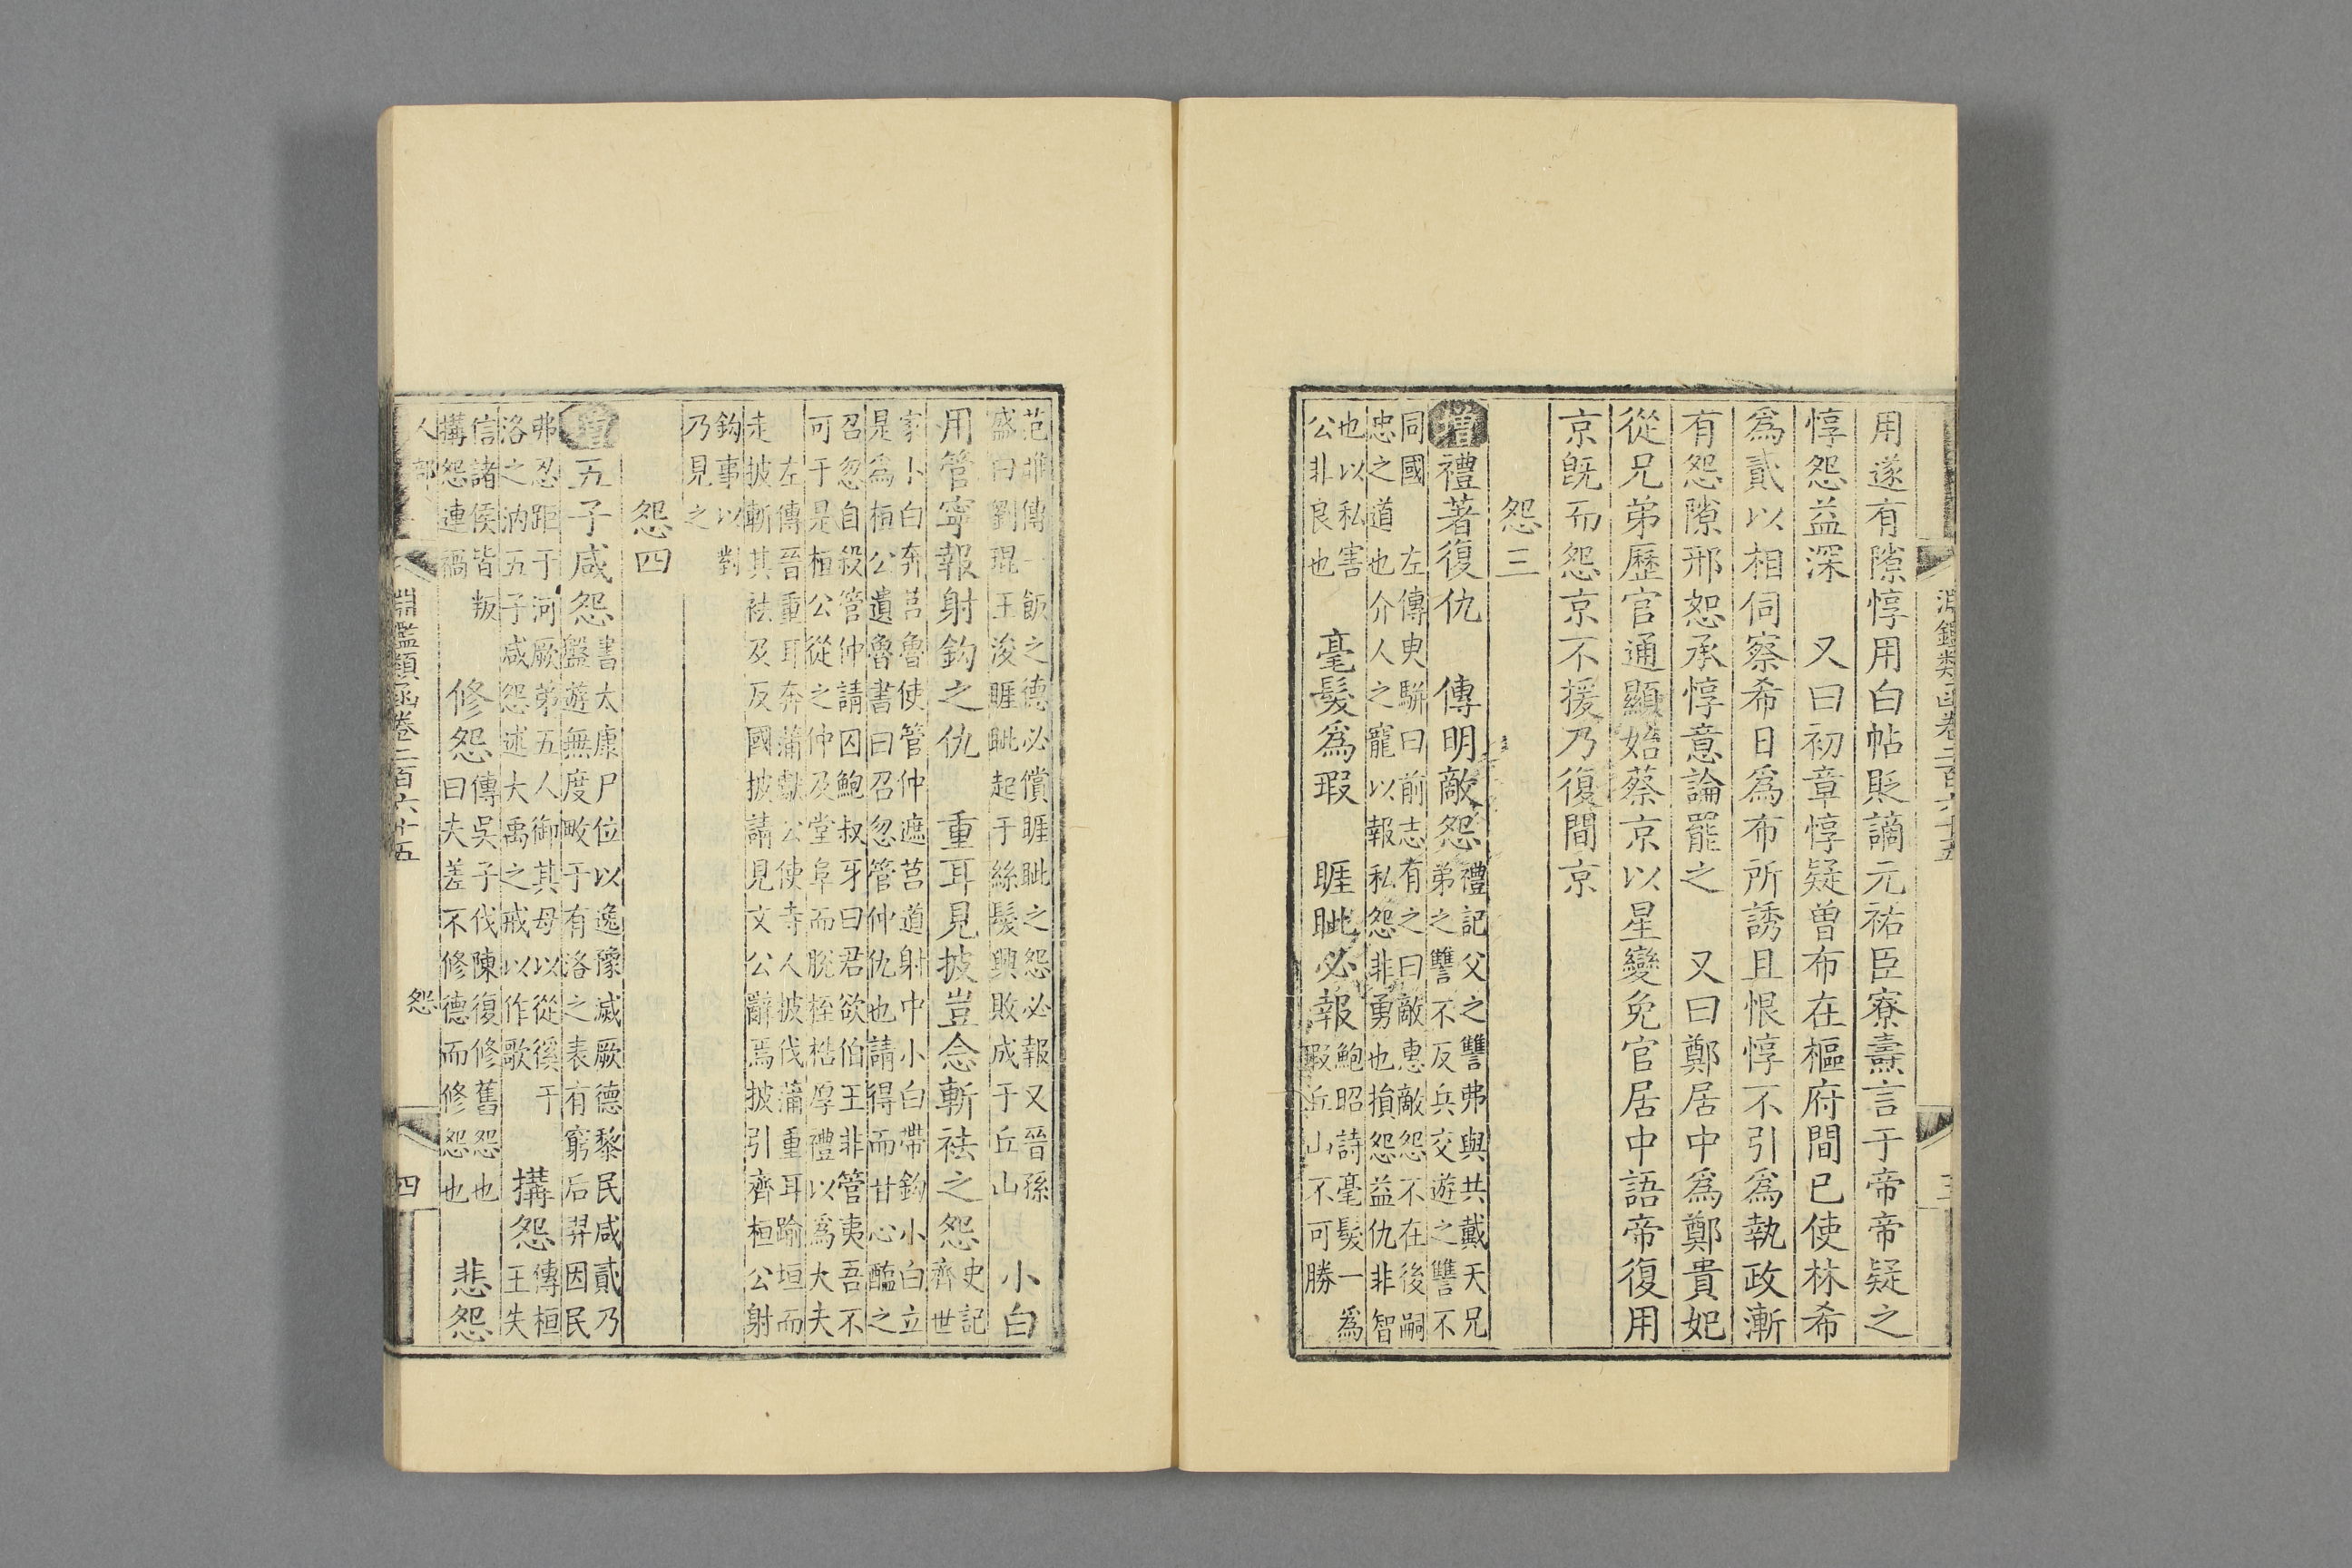 用遂有隙惇用白帖貶謫元祐臣寮壽言于帝帝疑之
惇怨益深　又曰初章惇疑曾布在樞府間已使林希
爲貳以相伺察希日爲布所誘且恨惇不引爲執政漸
有怨隙邢恕承惇意論罷之　又曰鄭居中爲鄭貴妃
從兄弟歷官通顯始蔡京以星變免官居中語帝復用
京旣而怨京不援乃復間京
怨三
增禮著復仇　傳明敵怨禮記父之讐弗與共戴天兄
弟之讐不反兵交遊之讐不
同國　左傳臾駢曰前志有之曰敵惠敵怨不在後嗣
忠之道也介人之寵以報私怨非勇也損怨益仇非智
也以私害
公非良也　毫髮爲瑕　睚眦必報鮑昭詩毫髮一爲
瑕丘山不可勝
范雎傳一飯之德必償睚眦之怨必報又晉孫
盛曰劉琨王浚睚眦起于絲髮興敗成于丘山　小白
用管寧報射鈎之仇　重耳見披豈念斬袪之怨史記
齊世
家小白奔莒魯使管仲遮莒道射中小白帶鈎小白立
是爲桓公公遺魯書曰召忽管仲仇也請得而甘心醢之
召忽自殺管仲請囚鮑叔牙曰君欲伯王非管夷吾不
可于是桓公從之仲及堂阜而脫桎梏厚禮以爲大夫
左傳晉重耳奔蒲獻公使寺人披伐蒲重耳踰垣而
走披斬其袪及反國披請見文公辭焉披引齊桓公射
鈎事以對
乃見之
怨四
增五子咸怨書太康尸位以逸豫滅厥德黎民咸貳乃
盤遊無度畋于有洛之表有窮后羿因民
弗忍距于河厥弟五人御其母以從徯于
洛之汭五子咸怨述大禹之戒以作歌　搆怨傳桓
王失
信諸侯皆叛
搆怨連禍　修怨傳吳子伐陳復修舊怨也
曰夫差不修德而修怨也　悲怨
人部
淵鑑類函卷二百六十五
怨
四